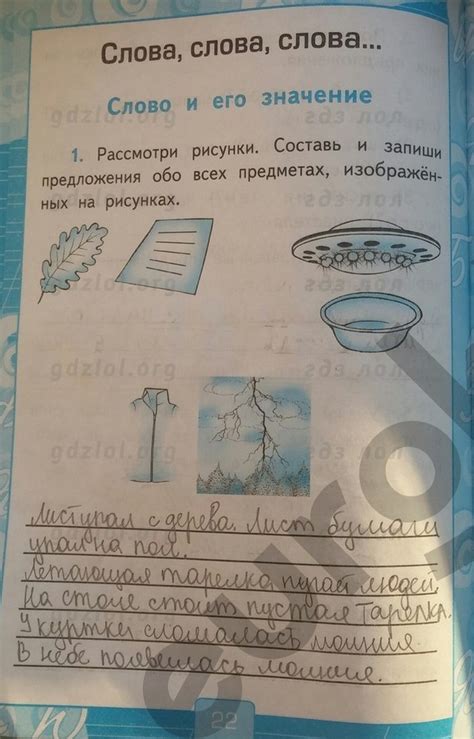 Слова, слова, слова...
Слово и его значение
1. Рассмотри рисунки. Составь и запиши
предложения обо всех предметах, изображён-
ных на рисунках.
gdzlol.org
gdzlol.org
gdzlol.org
gdzlol.org
Лист упал с дерева. Лист бумаги
упал на пол.
Летающая тарелка пугай людей.
На столе стоит пустая тарелка.
У куртки сломалась молния.
В небе появилась молния.
22